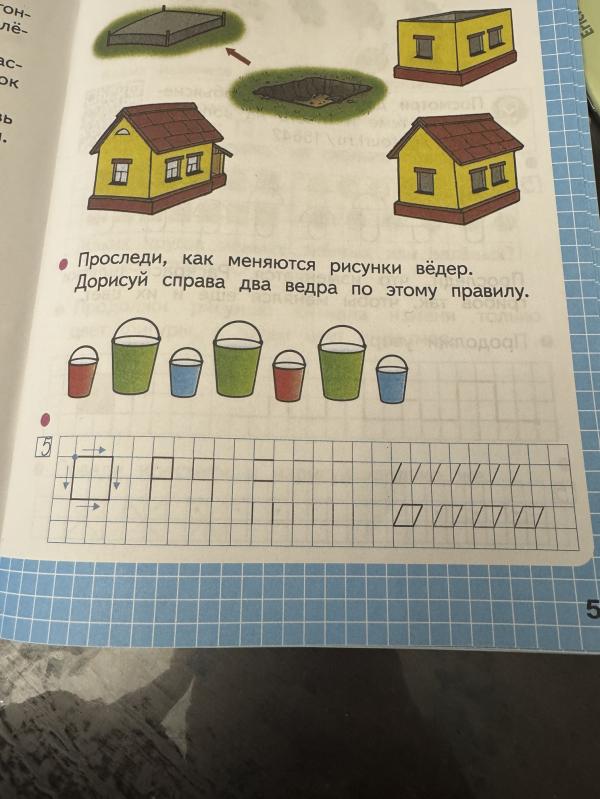 гон-
лё-
ас-
ок
вь
Проследи, как меняются рисунки вёдер.
Дорисуй справа два ведра по этому правилу.
5
5